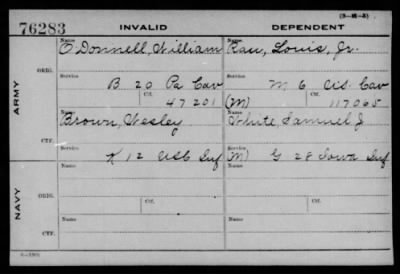 (3-46-3)
76283 INVALID DEPENDENT
Name Name
O'Donnell, William Rau, Louis, Jr.
ORIG.
Service Service
B 20 Pa Cav M 6 US. Cav
Ctf. Ctf.
47201 (M) 117065
ARMY
Name Name
Brown, Wesley White, Samuel J.
CTF.
Service Service
K 12 USC Inf (M) G 28 Iowa Inf
Name Name
ORIG.
Service Ctf. Service Ctf.
NAVY
Name Name
CTF.